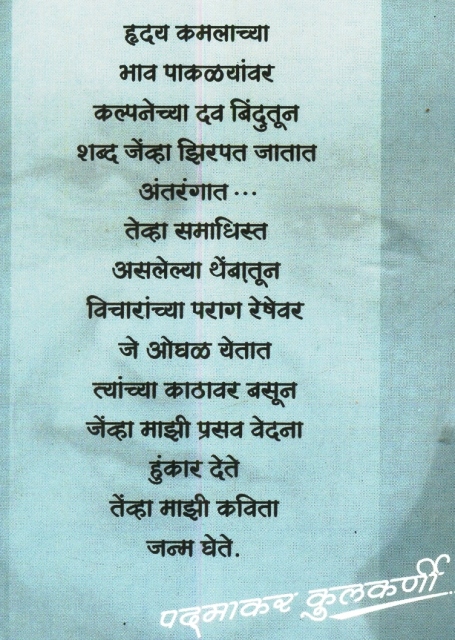 हृदय कमलाच्या
भाव पाकळयांवर
कल्पनेच्या दव बिंदुतून
शब्द जेंव्हा झिरपत जातात
अंतरंगात ...
तेव्हा समाधिस्त
असलेल्या थेंबातून
विचारांच्या पराग रेषेवर
जे ओघळ येतात
त्यांच्या काठावर बसून
जेंव्हा माझी प्रसव वेदना
हुंकार देते
तेंव्हा माझी कविता
जन्म घेते.
पद्माकर कुलकर्णी..